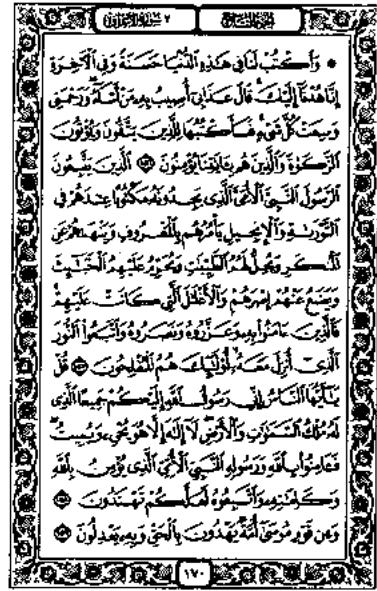 الجزء التاسع
سورة الأعراف ٧
۞ وَٱكْتُبْ لَنَا فِى هَـٰذِهِ ٱلدُّنْيَا حَسَنَةً وَفِى ٱلْـَٔاخِرَةِ
إِنَّا هُدْنَآ إِلَيْكَ ۚ قَالَ عَذَابِىٓ أُصِيبُ بِهِۦ مَنْ أَشَآءُ ۖ وَرَحْمَتِى
وَسِعَتْ كُلَّ شَىْءٍ ۚ فَسَأَكْتُبُهَا لِلَّذِينَ يَتَّقُونَ وَيُؤْتُونَ
ٱلزَّكَوٰةَ وَٱلَّذِينَ هُم بِـَٔايَـٰتِنَا يُؤْمِنُونَ ١٥٦ ٱلَّذِينَ يَتَّبِعُونَ
ٱلرَّسُولَ ٱلنَّبِىَّ ٱلْأُمِّىَّ ٱلَّذِى يَجِدُونَهُۥ مَكْتُوبًا عِندَهُمْ فِى
ٱلتَّوْرَىٰةِ وَٱلْإِنجِيلِ يَأْمُرُهُم بِٱلْمَعْرُوفِ وَيَنْهَىٰهُمْ عَنِ
ٱلْمُنكَرِ وَيُحِلُّ لَهُمُ ٱلطَّيِّبَـٰتِ وَيُحَرِّمُ عَلَيْهِمُ ٱلْخَبَـٰٓئِثَ
وَيَضَعُ عَنْهُمْ إِصْرَهُمْ وَٱلْأَغْلَـٰلَ ٱلَّتِى كَانَتْ عَلَيْهِمْ ۚ
فَٱلَّذِينَ ءَامَنُوا۟ بِهِۦ وَعَزَّرُوهُ وَنَصَرُوهُ وَٱتَّبَعُوا۟ ٱلنُّورَ
ٱلَّذِىٓ أُنزِلَ مَعَهُۥٓ ۙ أُو۟لَـٰٓئِكَ هُمُ ٱلْمُفْلِحُونَ ١٥٧ قُلْ
يَـٰٓأَيُّهَا ٱلنَّاسُ إِنِّى رَسُولُ ٱللَّهِ إِلَيْكُمْ جَمِيعًا ٱلَّذِى
لَهُۥ مُلْكُ ٱلسَّمَـٰوَٰتِ وَٱلْأَرْضِ ۖ لَآ إِلَـٰهَ إِلَّا هُوَ يُحْىِۦ وَيُمِيتُ ۖ
فَـَٔامِنُوا۟ بِٱللَّهِ وَرَسُولِهِ ٱلنَّبِىِّ ٱلْأُمِّىِّ ٱلَّذِى يُؤْمِنُ بِٱللَّهِ
وَكَلِمَـٰتِهِۦ وَٱتَّبِعُوهُ لَعَلَّكُمْ تَهْتَدُونَ ١٥٨
وَمِن قَوْمِ مُوسَىٰٓ أُمَّةٌ يَهْدُونَ بِٱلْحَقِّ وَبِهِۦ يَعْدِلُونَ ١٥٩
١٧٠